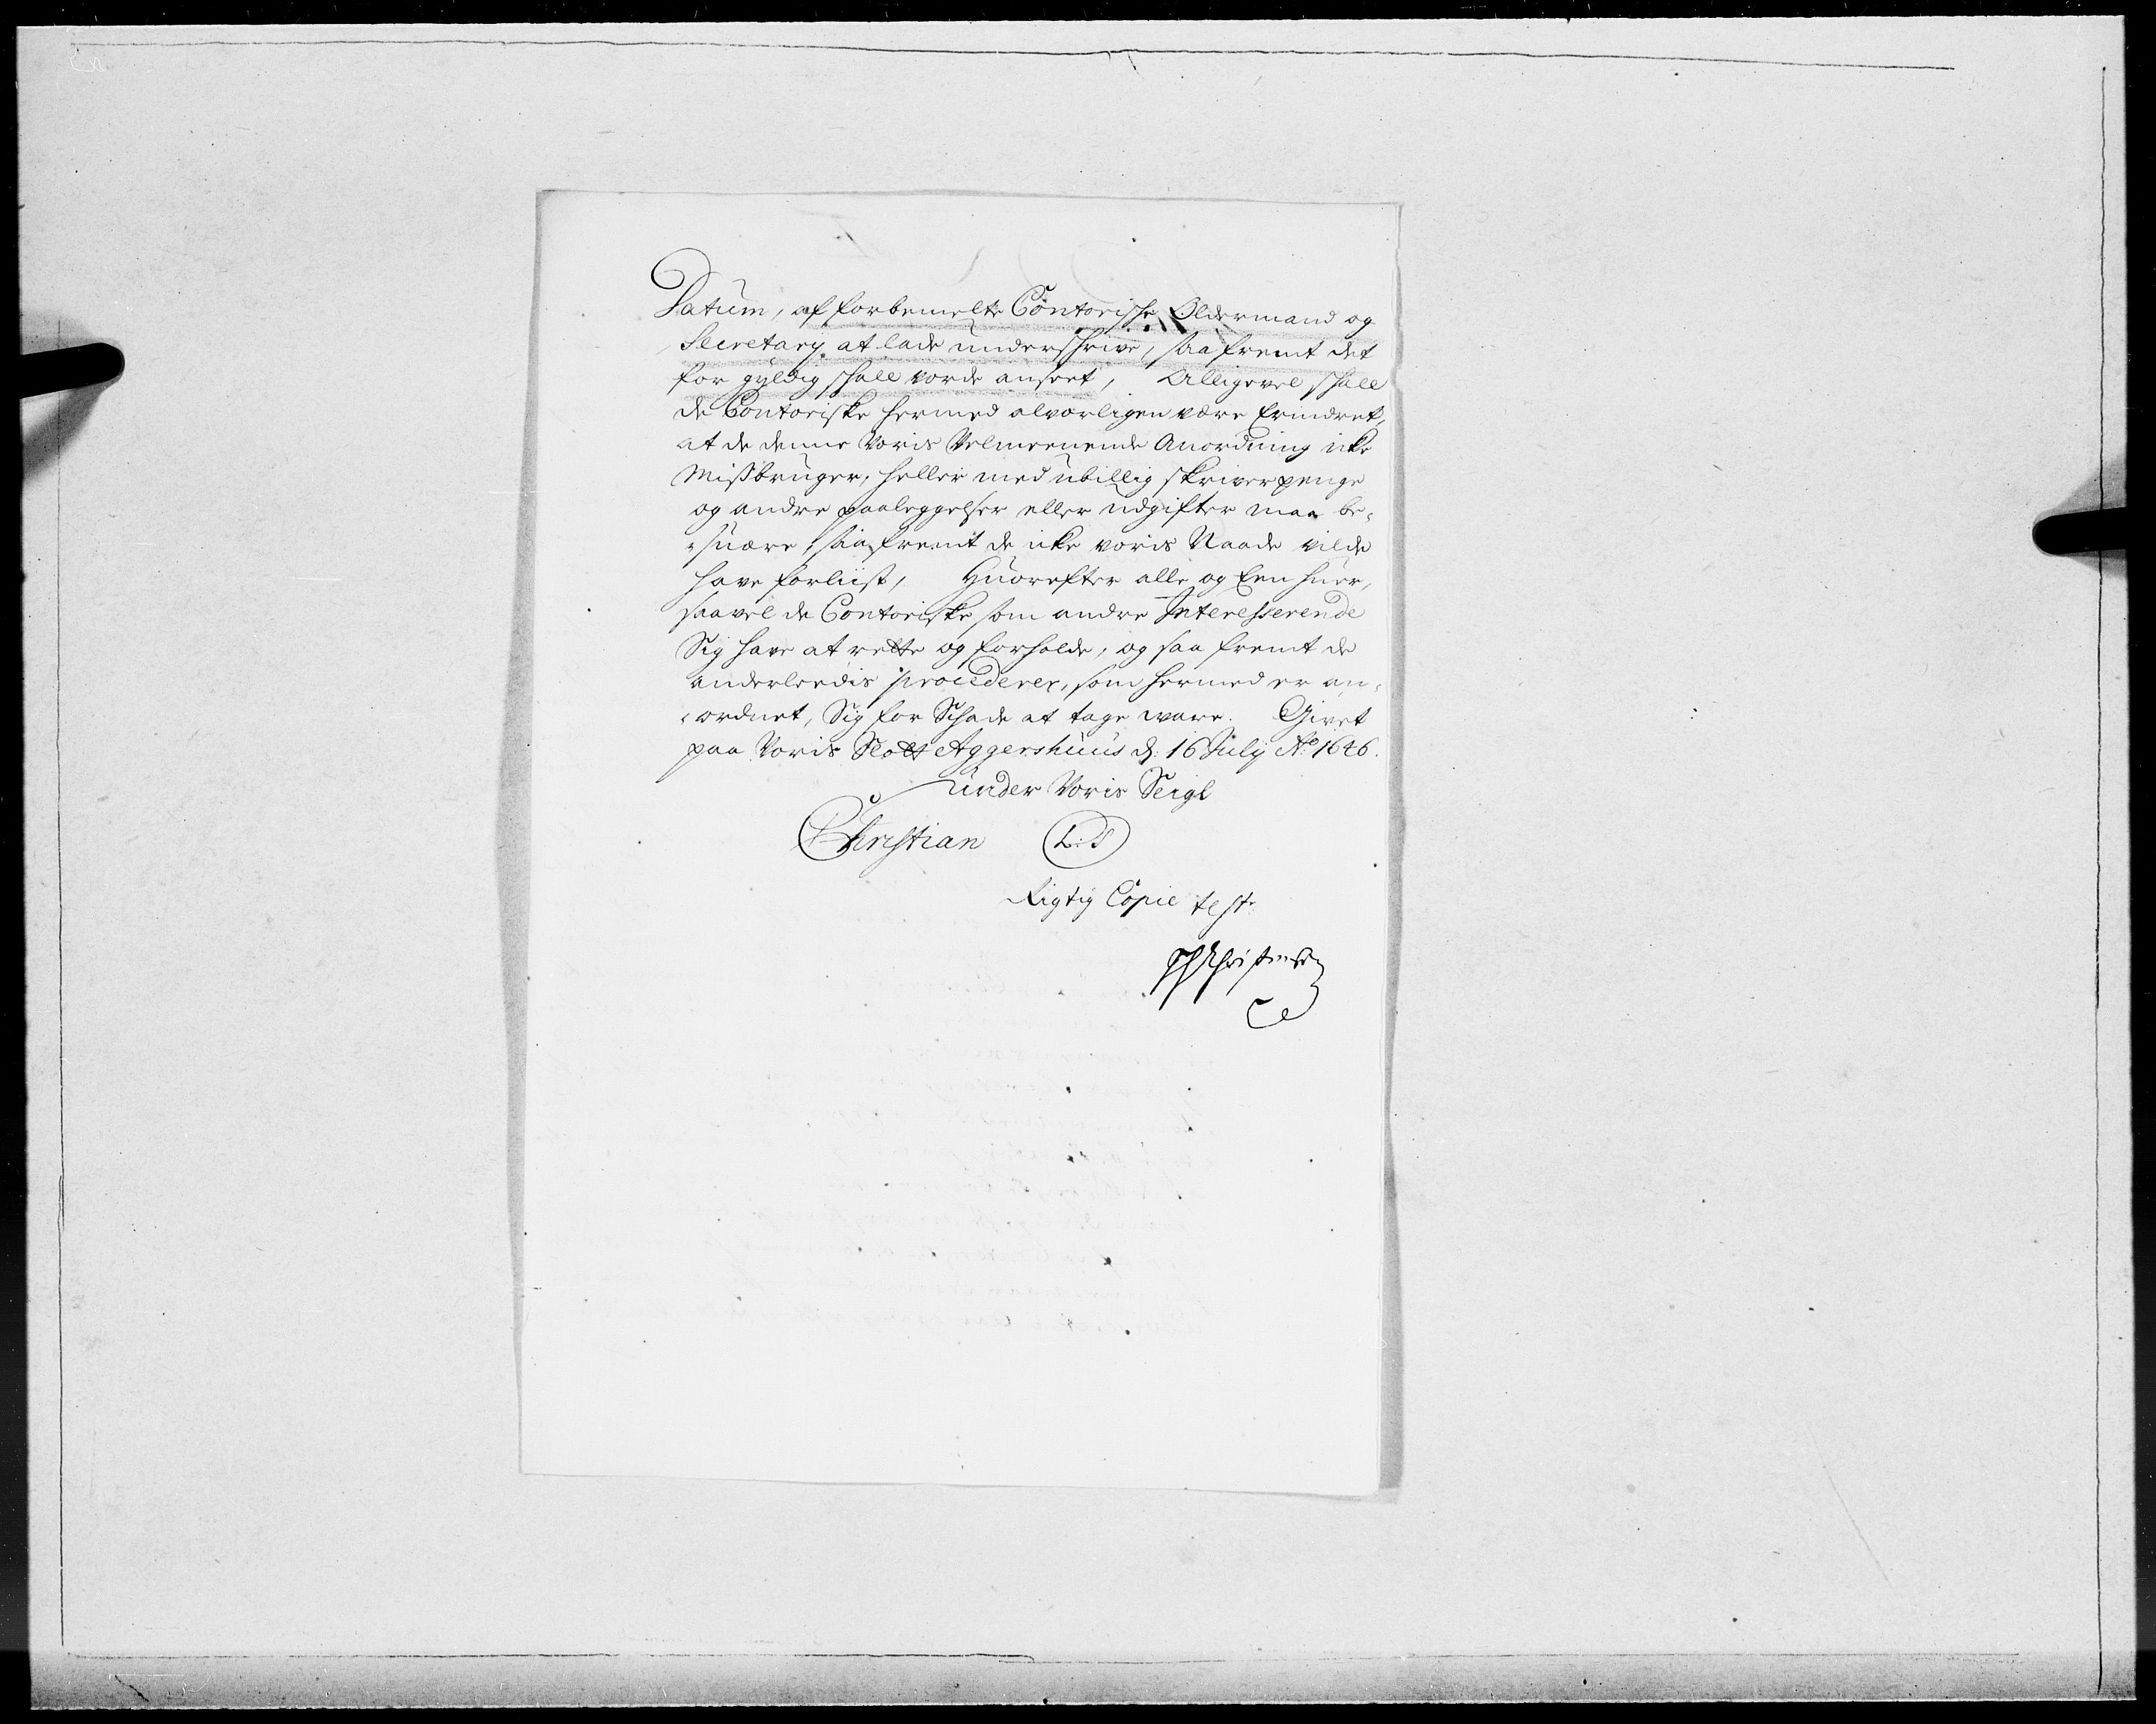 Datum, af forbemelte Contorische Oldermand og
Secretary at lade underschrive, saafremt det
for gyldig schall vorde anseet, Alligevel schall
de Contoriske hermed alvorligen være Erindret,
at de denne Voris Velmeenende Anordning icke
Missbruger, heller med ubillig skriverpenge
og andre paaleggelser eller udgifter maa be-
-suære, saafremt de icke voris Naade vilde
have forliist, Huorefter alle og Een huer,
saavel de Contoriske som andre Interesserende
Sig have at rette og forholde, og saa fremt de
anderleedis procederer, som hermed er an-
-ordnet, Sig for Schade at tage vare. Givet
paa Voris Slott Aggershuus d: 16 July Ao 1646.
under Voris Seigl
Christian L:S
Rigtig Copie test: